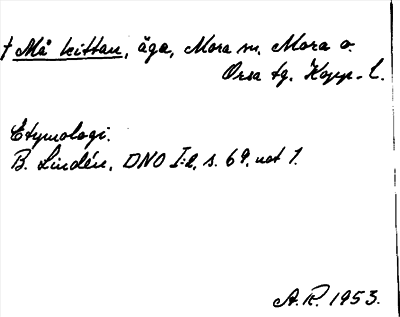 † Må kittan, äga, Mora sn. Mora o.
Orsa tg. Kopp. l.
Etymologi.
B. Lindén, DNO I:2, s. 69, not 1.
A.R. 1953.